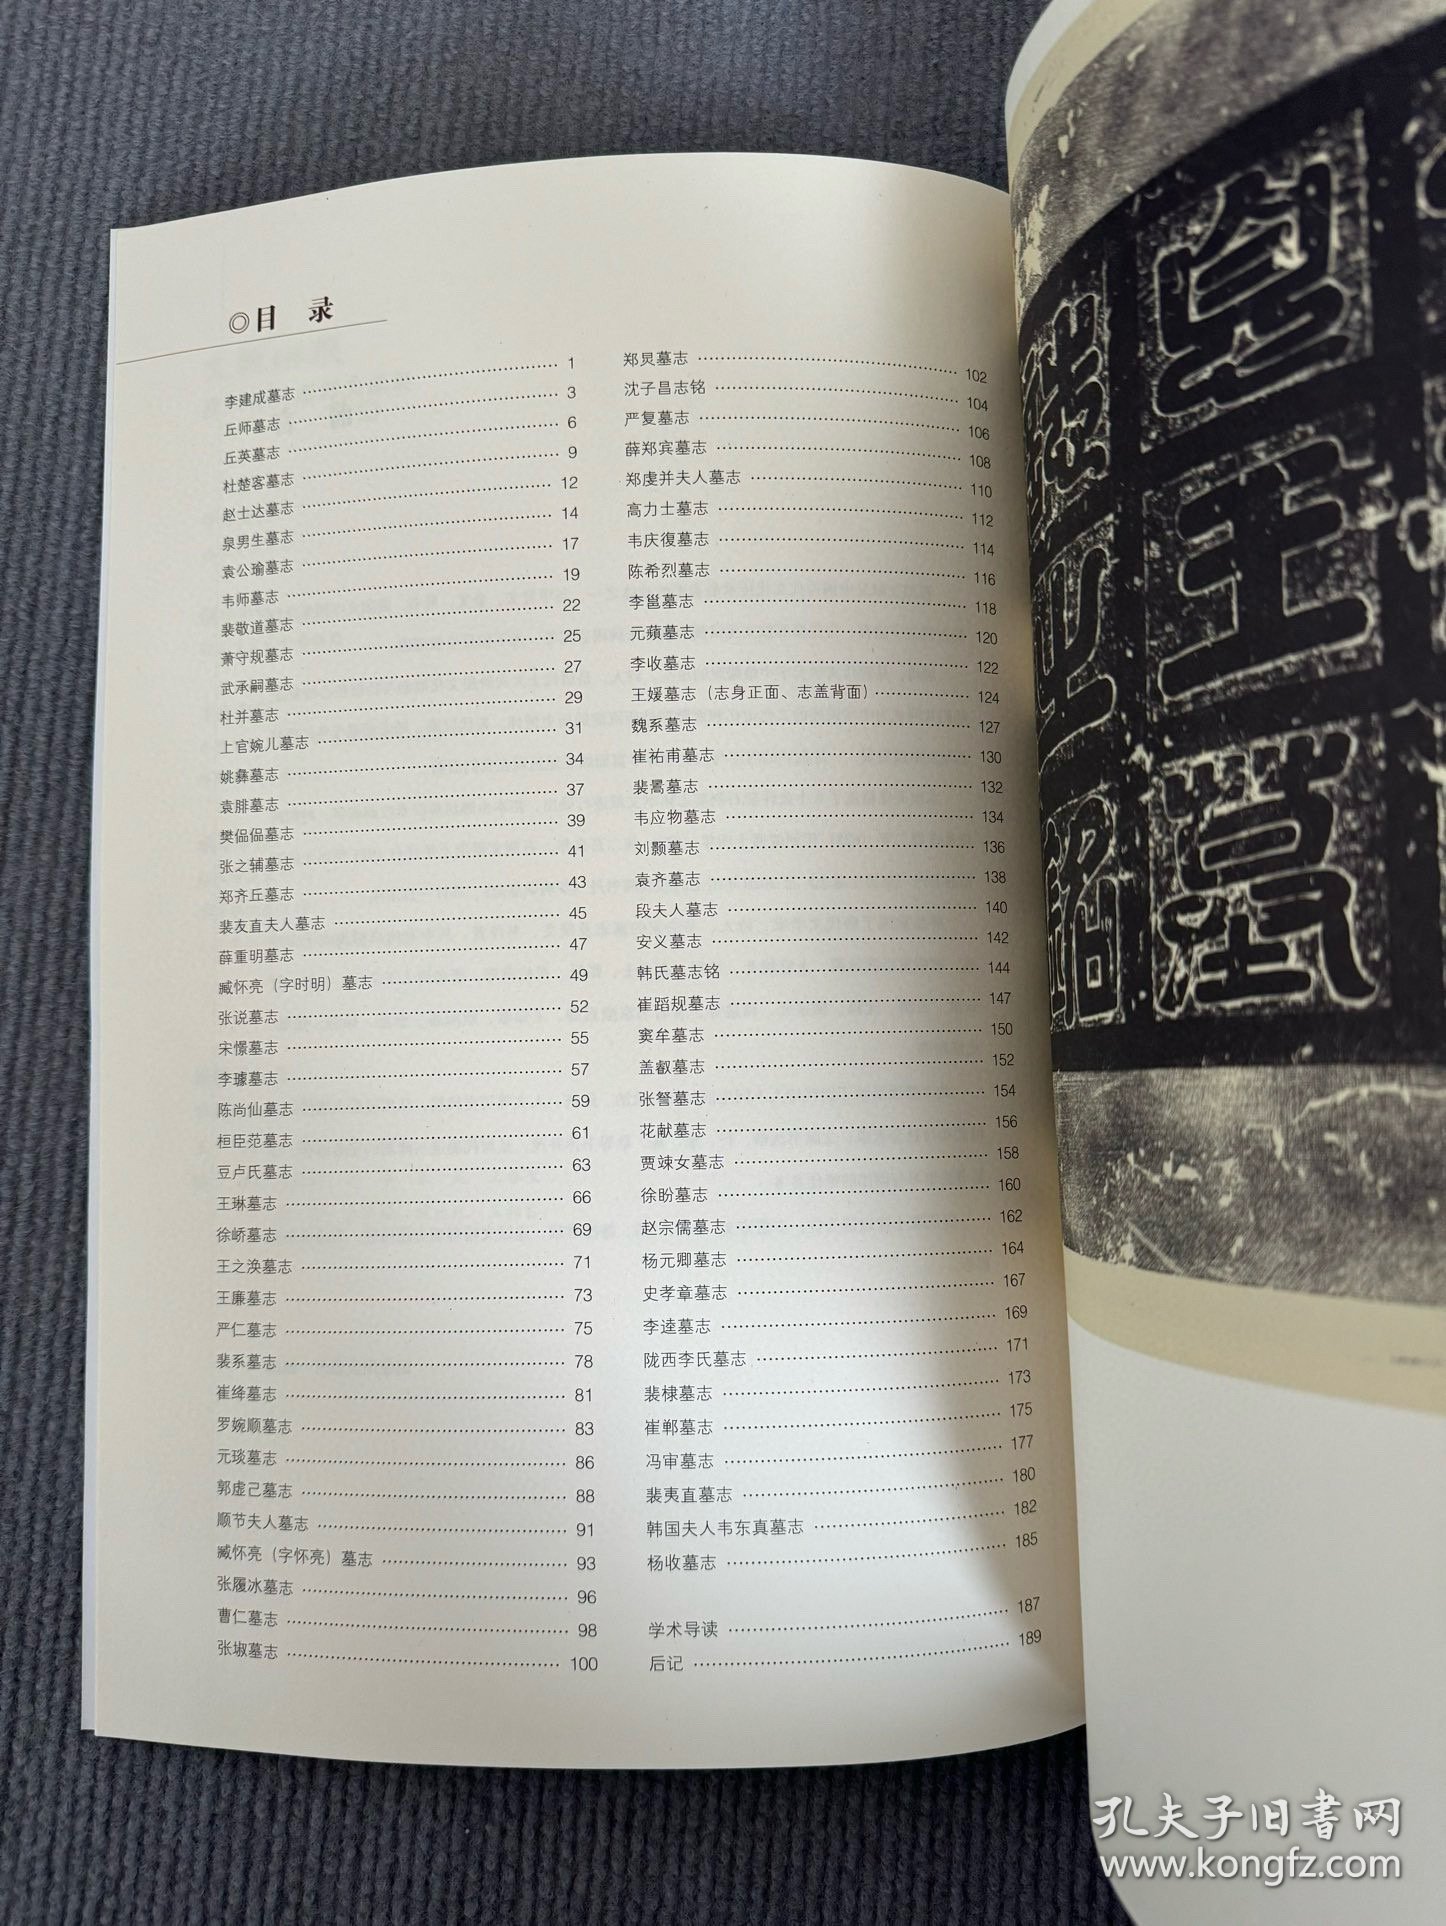 ◎目 录
李建成墓志 1
丘师墓志 3
丘英墓志 6
杜楚客墓志 9
赵士达墓志 12
泉男生墓志 14
袁公瑜墓志 17
韦师墓志 19
裴敬道墓志 22
萧守规墓志 25
武承嗣墓志 27
杜并墓志 29
上官婉儿墓志 31
姚彝墓志 34
袁腓墓志 37
樊偘偘墓志 39
张之辅墓志 41
郑齐丘墓志 43
裴友直夫人墓志 45
薛重明墓志 47
臧怀亮（字时明）墓志 49
张说墓志 52
宋憬墓志 55
李璩墓志 57
陈尚仙墓志 59
桓臣范墓志 61
豆卢氏墓志 63
王琳墓志 66
徐峤墓志 69
王之涣墓志 71
王廉墓志 73
严仁墓志 75
裴系墓志 78
崔绛墓志 81
罗婉顺墓志 83
元琰墓志 86
郭虚己墓志 88
顺节夫人墓志 91
臧怀亮（字怀亮）墓志 93
张履冰墓志 96
曹仁墓志 98
张埱墓志 100
郑炅墓志 102
沈子昌志铭 104
严复墓志 106
薛郑宾墓志 108
郑虔并夫人墓志 110
高力士墓志 112
韦庆復墓志 114
陈希烈墓志 116
李邕墓志 118
元蘋墓志 120
李收墓志 122
王媛墓志（志身正面、志盖背面） 124
魏系墓志 127
崔祐甫墓志 130
裴鷽墓志 132
韦应物墓志 134
刘颢墓志 136
袁齐墓志 138
段夫人墓志 140
安义墓志 142
韩氏墓志铭 144
崔蹈规墓志 147
窦牟墓志 150
盖叡墓志 152
张弩墓志 154
花献墓志 156
贾竦女墓志 158
徐盼墓志 160
赵宗儒墓志 162
杨元卿墓志 164
史孝章墓志 167
李逵墓志 169
陇西李氏墓志 171
裴棣墓志 173
崔郸墓志 175
冯审墓志 177
裴夷直墓志 180
韩国夫人韦东真墓志 182
杨收墓志 185
学术导读 187
后记 189
孔夫子旧书网
www.kongfz.com